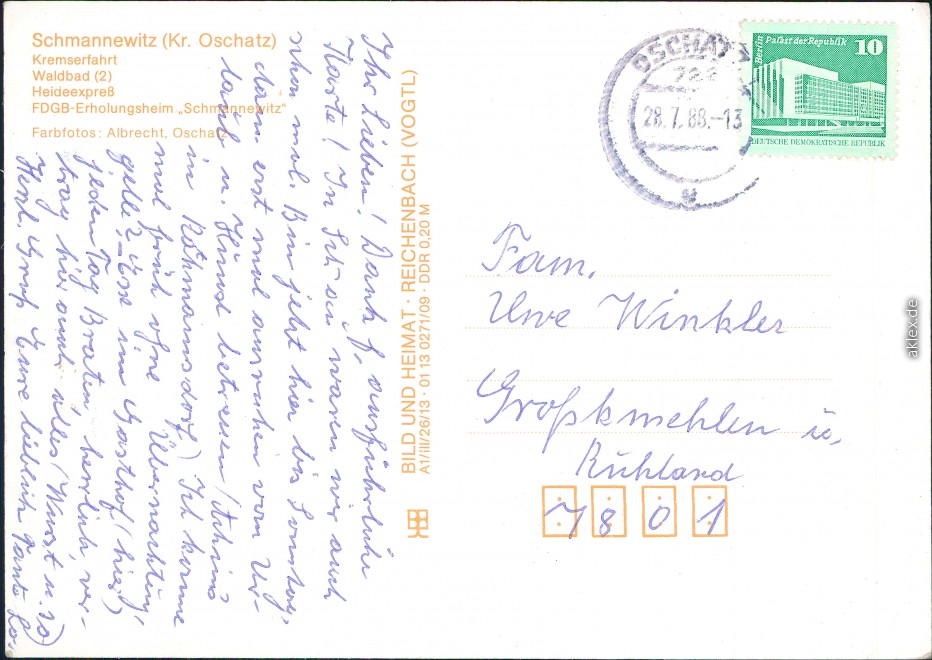 Schmannewitz (Kr. Oschatz)
Kremserfahrt
Waldbad (2)
Heideexpreß
FDGB-Erholungsheim „Schmannewitz"
Farbfotos: Albrecht, Oschatz
Ihr Lieben! Dank f. ausführliche
Karte! In waren wir auch
schon mal. Bin jetzt hier bis Sonntag,
dann erst mal ausruhen vom Ur-
laub u. Hund betreuen (
in Röhmannsdorf.) Ich komme
mal früh ohne Übernachtung,
gelle? Esse im Gasthof (hier)
jeden Tag Braten, herrlich, ver-
trag hier auch alles (Wurst u. so)
Herzl. Gruß Eure Tante Lo.
BILD UND HEIMAT · REICHENBACH (VOGTL)
A1/III/26/13 · 01 13 0271/09 · DDR 0,20 M
OSCHATZ
28.7.88.-13
Berlin Palast der Republik 10
DEUTSCHE DEMOKRATISCHE REPUBLIK
Fam.
Uwe Winkler
Großkmehlen ü.
Ruhland
7801
aklex.de